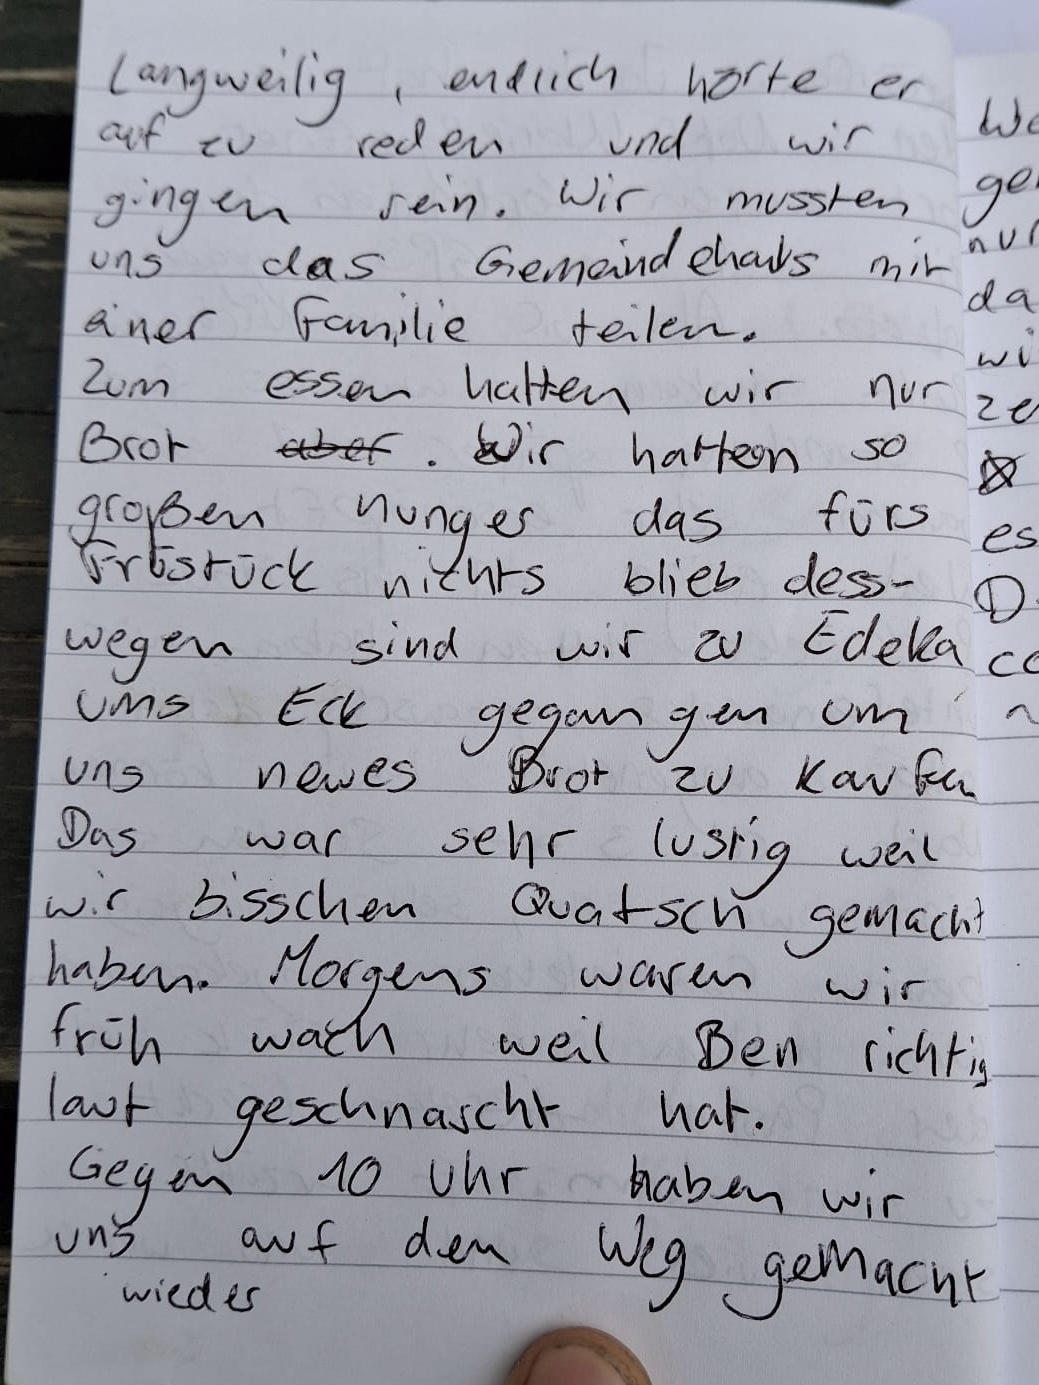 Langweilig, endlich hörte er
auf zu reden und wir
gingen rein. Wir mussten
uns das Gemeindehaus mit
einer Familie teilen.
Zum essen hatten wir nur
Brot aber. Wir hatten so
großen hunger das fürs
Früstück nichts blieb dess-
wegen sind wir zu Edeka
ums Eck gegangen um
uns neues Brot zu kaufen
Das war sehr lustig weil
wir bisschen Quatsch gemacht
haben. Morgens waren wir
früh wach weil Ben richtig
laut geschnascht hat.
Gegen 10 Uhr haben wir
uns auf den Weg gemacht
wieder
We
ge
nur
da
wi
ze
es
D